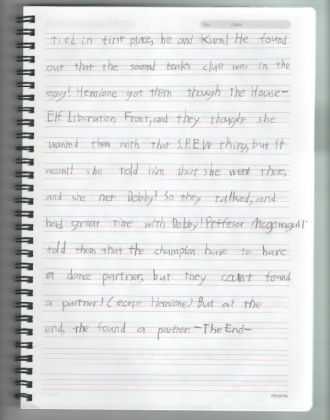 No. Date
tied in first place, he and Krum! He found
out that the second task's clue was in the
egg! Hemione got them though the House-
Elf Liberation Front, and they thought she
wanted them with that S.P.E.W thing, but it
wasn't she told him that she went there,
and she met Dobby! So they talked, and
had great time with Dobby! Proffesor Mcgonagall
told them that the champion have to have
a dance partner, but they couldn't found
a partner! (ecept Hemione) But at the
end, the found a partner. -The End-
PENPIA